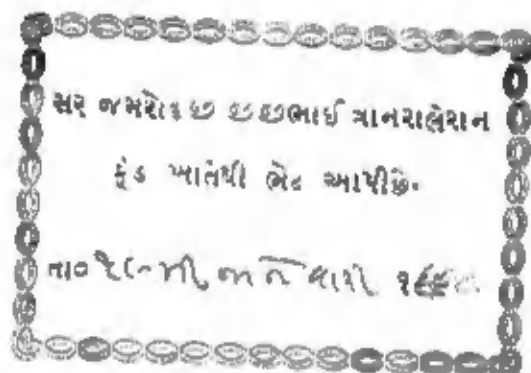 સર જમશેદજી જીજીભાઈ ત્રાનસલેશન
ફંડ ખાતેથી ભેટ આપીછે.
તા૦ ૨૮ મી જાનેવારી